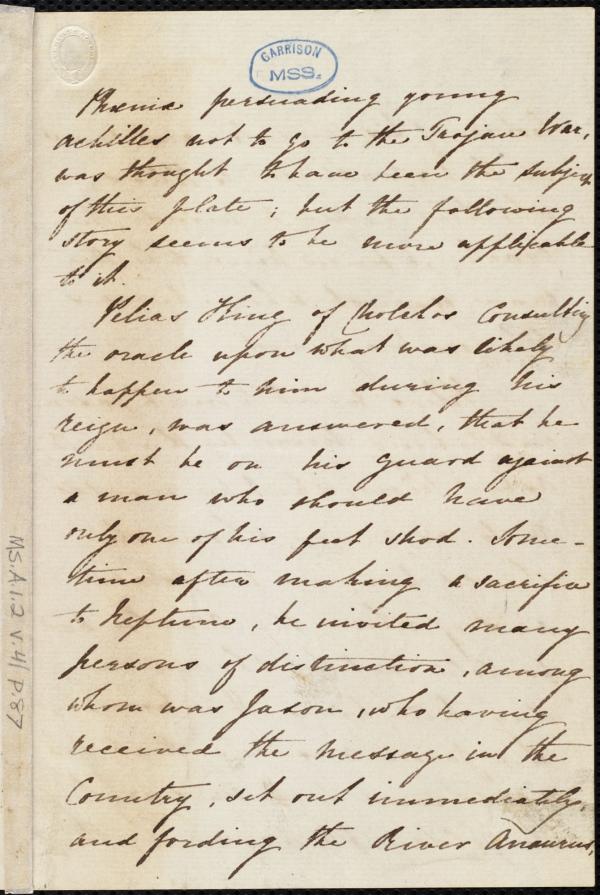 GARRISON
MSS.
Phœnix persuading young
Achilles not to go to the Trojan War,
was thought to have been the subject
of this plate; but the following
story seems to be more applicable
to it.
Pelias King of Cholchos Consulting
the oracle upon what was likely
to happen to him during his
reign, was answered, that he
must be on his guard against
a man who should have
only one of his feet shod. Some-
time after making a sacrifice
to Neptune, he invited many
persons of distinction, among
whom was Jason, who having
received the message in the
Country, set out immediately,
and fording the River Anaurus,
MS.A.1.2 V.41 P.87